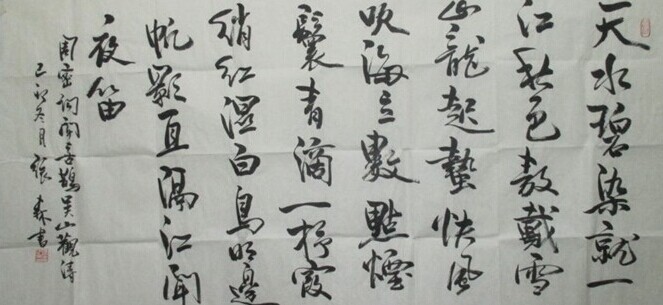 天水碧染就一
江秋色敖戴雪
山龍起蟄快風
吹海立數點煙
鬟青滴一杼霞
綃红濕白鳥明邊
帆影直隔江聞
夜笛
周密詞聞喜鵲吴山觀濤
己卯冬月張森書